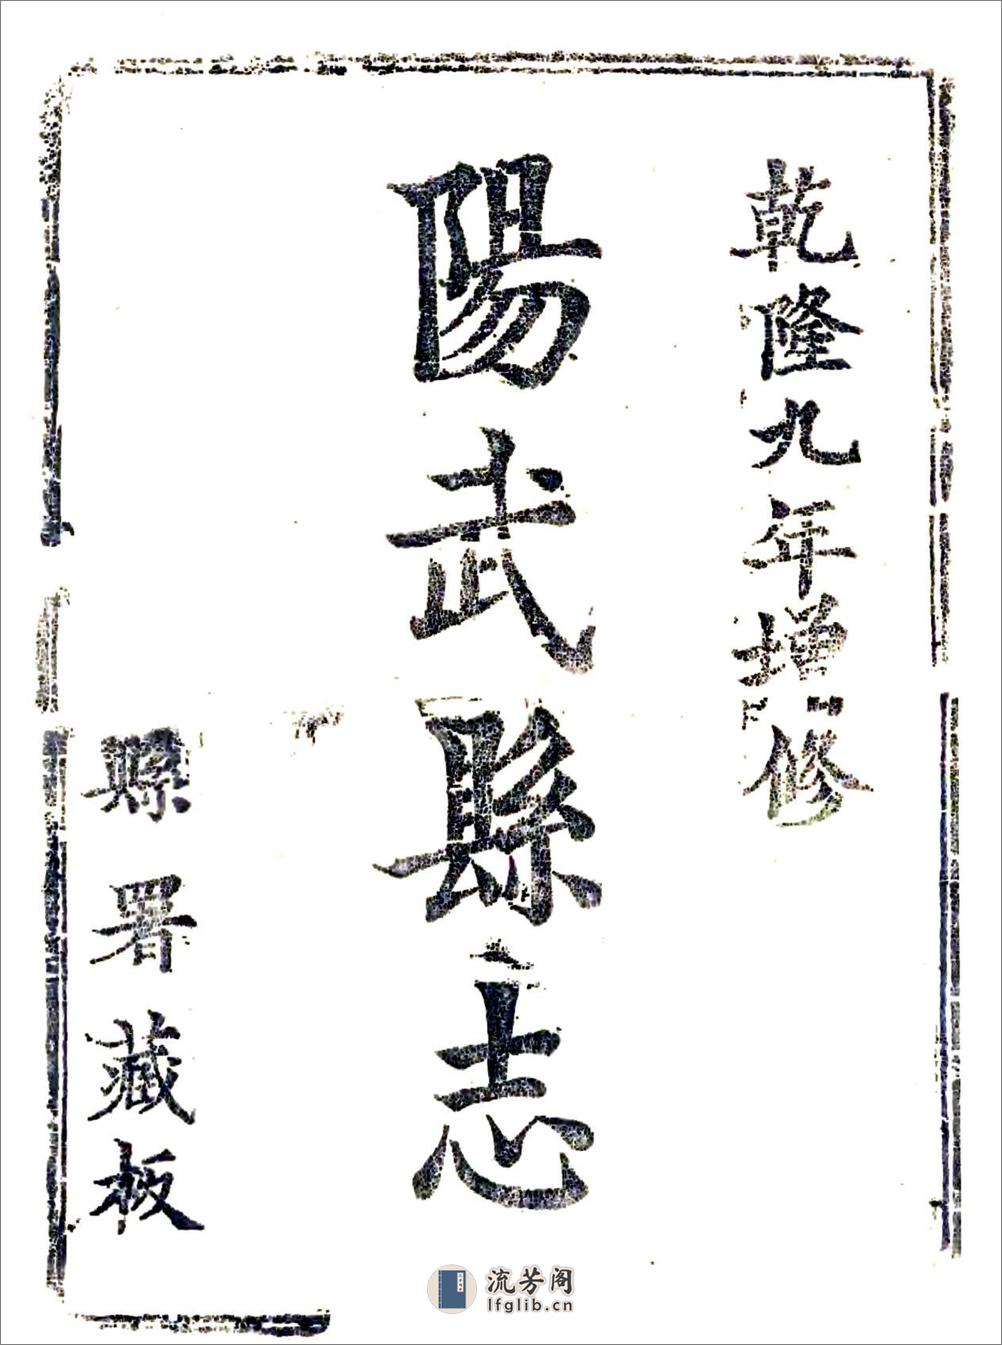 乾隆九年增修
陽武縣志
縣署藏板
流芳阁
lfglib.cn